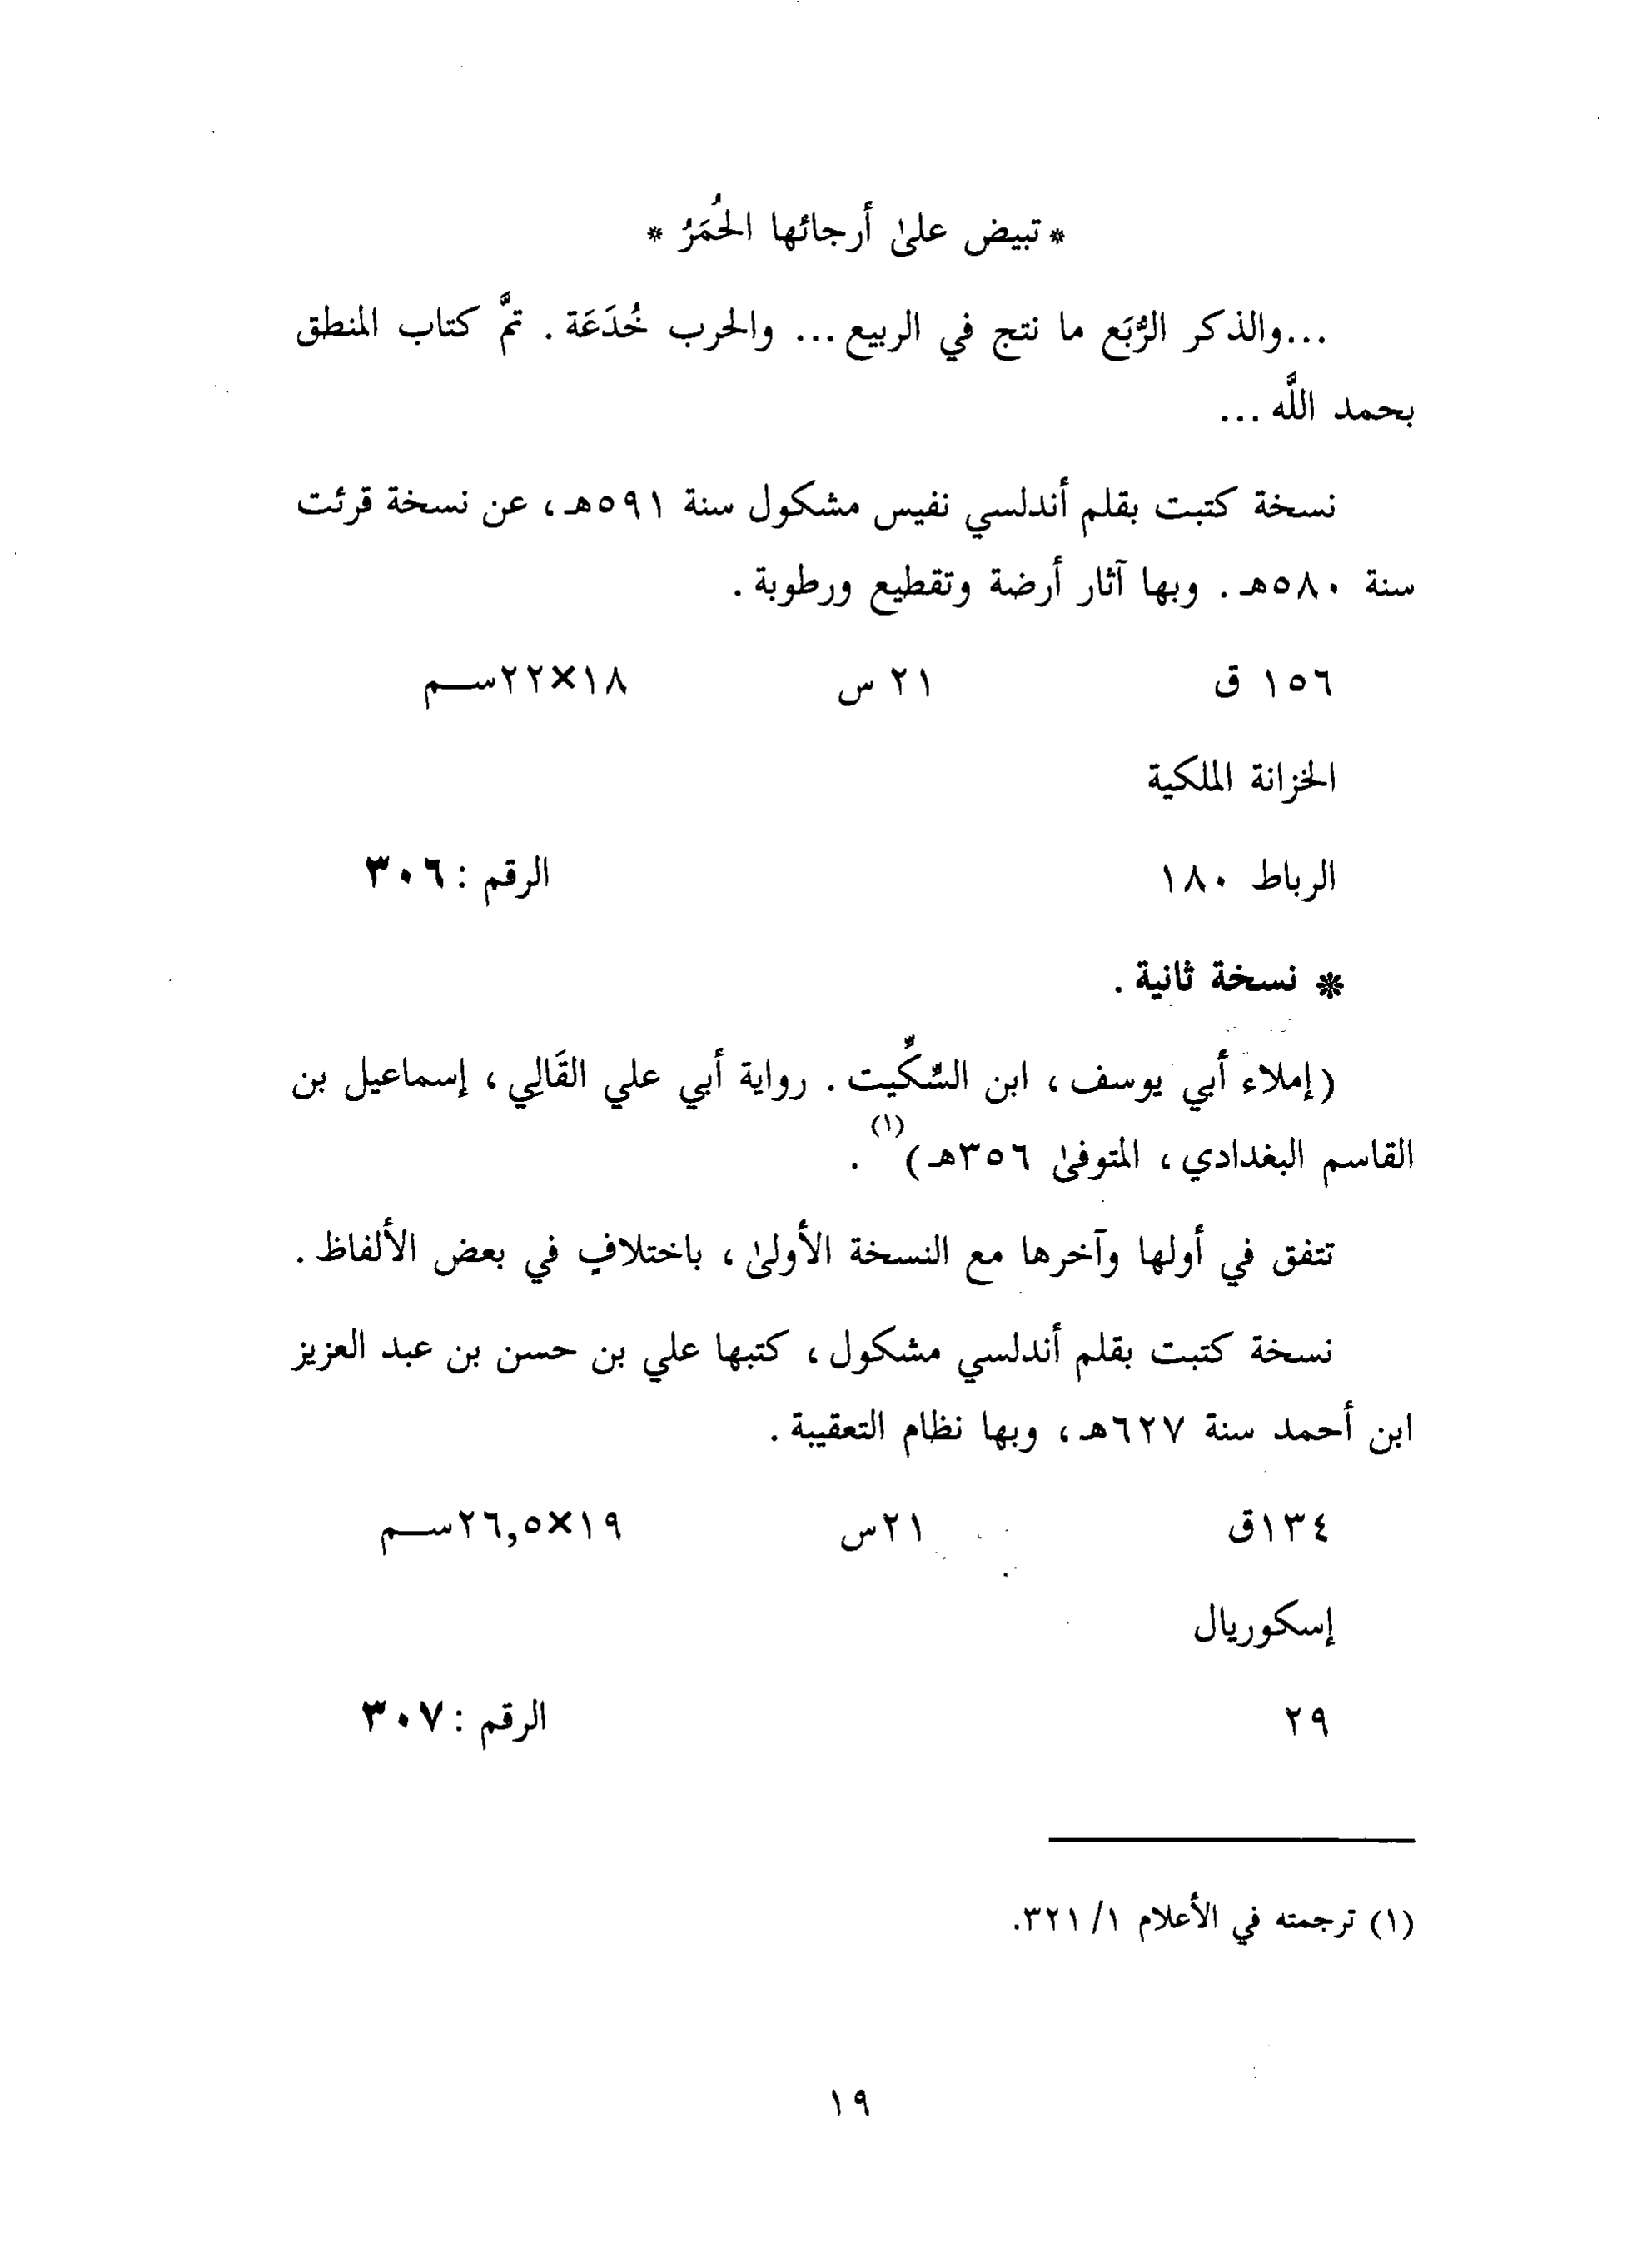 * تبيض علىٰ أرجائها الحُمَرُ *
...والذكر الرُّبَع ما نتج في الربيع... والحرب خُدَعَة. تمَّ كتاب المنطق
بحمد اللَّه ...
نسخة كتبت بقلم أندلسي نفيس مشكول سنة ٥٩١هـ، عن نسخة قرئت
سنة ٥٨٠هـ. وبها آثار أرضة وتقطيع ورطوبة.
١٥٦ ق ٢١ س ١٨×٢٢ســم
الخزانة الملكية
الرباط ١٨٠ الرقم : ٣٠٦
* نسخة ثانية.
(إملاء أبي يوسف، ابن السِّكِّيت. رواية أبي علي القَالِي، إسماعيل بن
القاسم البغدادي، المتوفىٰ ٣٥٦هـ)(١).
تتفق في أولها وآخرها مع النسخة الأولىٰ، باختلافٍ في بعض الألفاظ.
نسخة كتبت بقلم أندلسي مشكول، كتبها علي بن حسن بن عبد العزيز
ابن أحمد سنة ٦٢٧هـ، وبها نظام التعقيبة.
١٣٤ق ٢١س ١٩×٢٦,٥ســم
إسكوريال
٢٩ الرقم : ٣٠٧
(١) ترجمته في الأعلام ١/ ٣٢١.
١٩